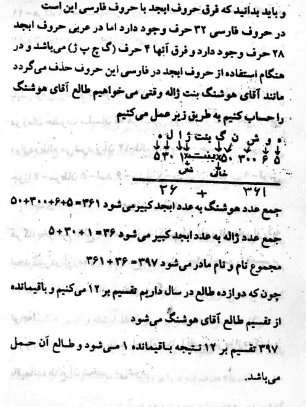 و باید بدانید که فرق حروف ابجد با حروف فارسی این است
در حروف فارسی ۳۲ حرف وجود دارد اما در عربی حروف ابجد
۲۸ حرف وجود دارد و فرق آنها ۴ حرف (گ چ پ ژ) میباشد و در
هنگام استفاده از حروف ابجد در فارسی این حروف حذف می‌گردد
مانند آقای هوشنگ بنت ژاله وقتی می‌خواهیم طالع آقای هوشنگ
را حساب کنیم به طریق زیر عمل می‌کنیم
ه و ش ن گ بنت ژ ا ل ه
۵ ۶ ۳۰۰ ۵۰ ۱ ۳۰ ۵
خالی
۳۶۱ + ۳۶
جمع عدد هوشنگ به عدد ابجد کبیر می‌شود ۳۶۱=۵+۶+۳۰۰+۵۰
جمع عدد ژاله به عدد ابجد کبیر می‌شود ۳۶ = ۱ + ۳۰ + ۵
مجموع نام و نام مادر می‌شود ۳۹۷ = ۳۶ + ۳۶۱
چون که دوازده طالع در سال داریم تقسیم بر ۱۲ می‌کنیم و باقیمانده
از تقسیم طالع آقای هوشنگ می‌شود
۳۹۷ تقسیم بر ۱۲ نتیجه باقیمانده ۱ میشود و طالع آن حمل
می‌باشد.